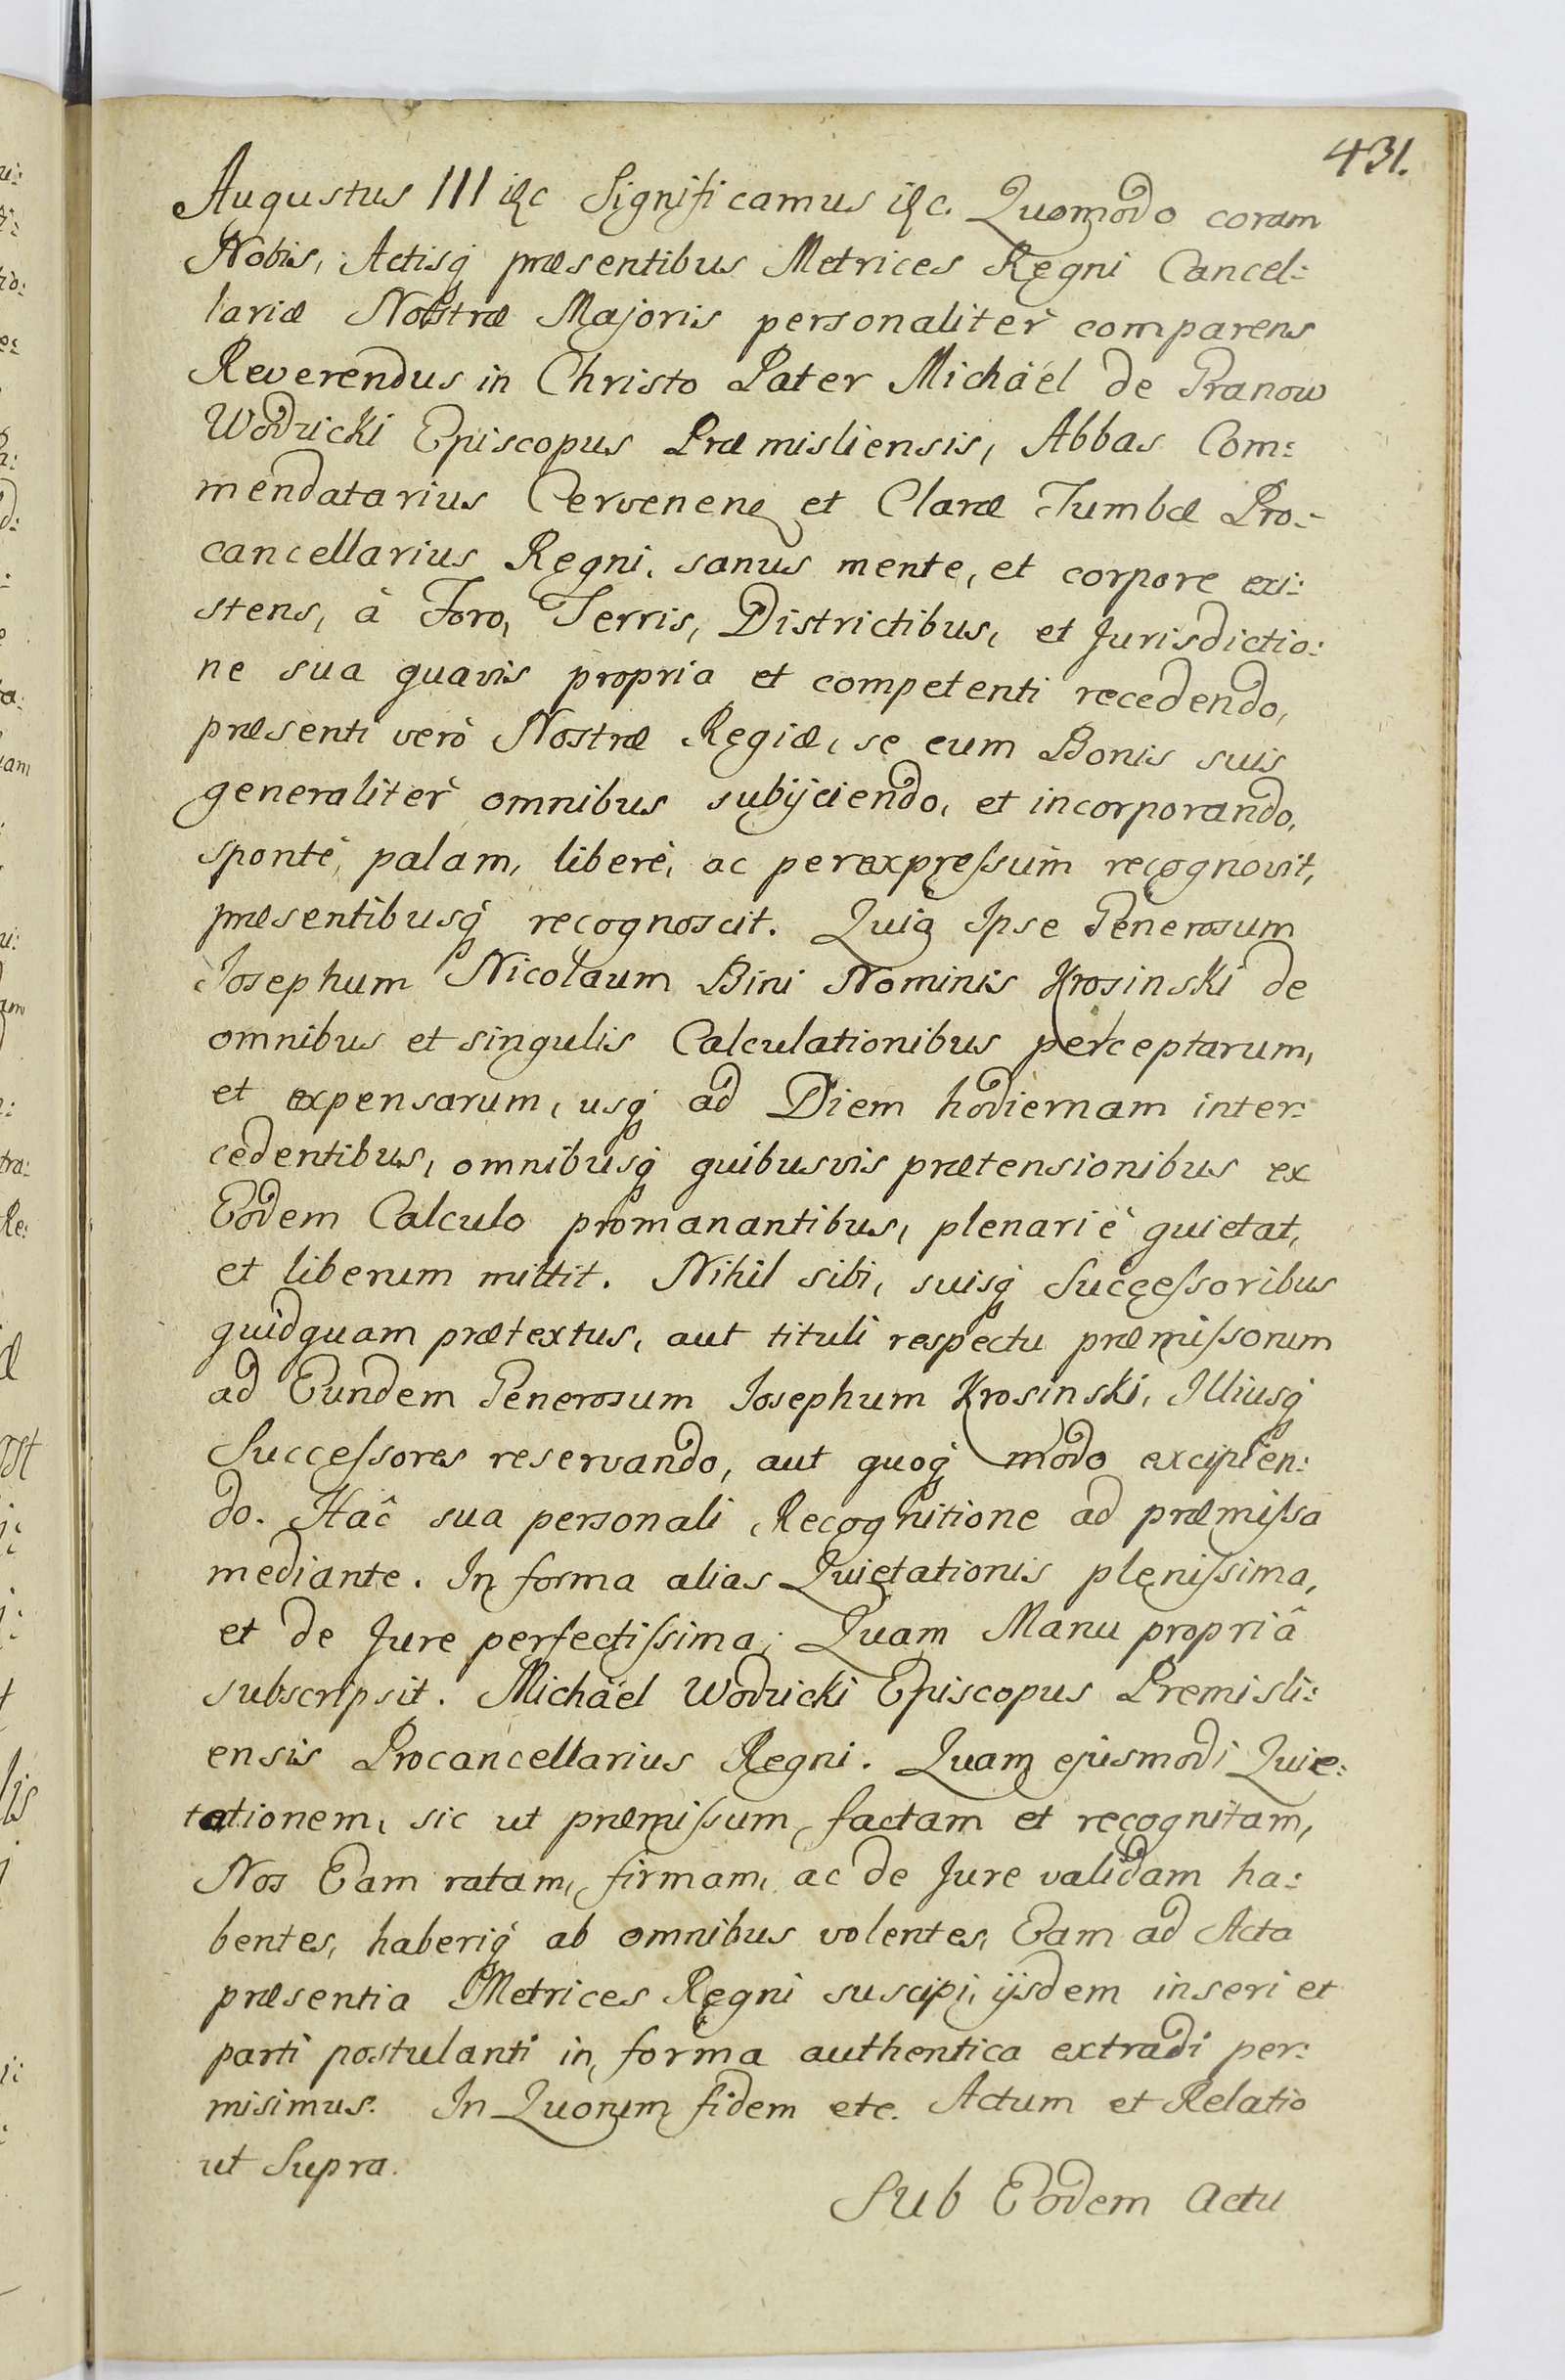 431.
Augustus III &c Significamus &c. Quomodo coram
Nobis, Actisq præsentibus Metrices Regni Cancel:
lariæ Nostræ Majoris personalitèr comparens
Reverendus in Christo Pater Michaël de Granow
Wodzicki Episcopus Præmisliensis, Abbas Com:
mendatarius Cervenen et Claræ Tumbæ Pro:
cancellarius Regni, sanus mente, et corpore exi:
stens, à Foro, Terris, Districtibus, et Jurisdictio:
ne sua quavis propria et competenti recedendo,
præsenti verò Nostræ Regiæ, se cum Bonis suis
generalitèr omnibus subijciendo, et incorporando,
spontè, palam, liberè, ac perexpreſsum recognovit,
præsentibusq recognoscit. Quia Ipse Generosum
Josephum Nicolaum Bini Nominis Krosinski de
omnibus et singulis Calculationibus perceptarum,
et expensarum, usq ad Diem hodiernam inter:
cedentibus, omnibusq quibusvis prætensionibus ex
Eodem Calculo promanantibus, plenariè quietat,
et liberum mittit. Nihil sibi, suisq Succeſsoribus
quidquam prætextus, aut tituli respectu præmiſsorum
ad Eundem Generosum Josephum Krosinski, Illiusq
Succeſsores reservando, aut quoq modo excipien:
do. Hâc sua personali Recognitione ad præmiſsa
mediante. In forma alias Quietationis pleniſsima,
et de Jure perfectiſsima; Quam Manu propriâ
subscripsit. Michaël Wodzicki Episcopus Premisli:
ensis Procancellarius Regni. Quam ejusmodi Quie:
tationem, sic ut præmiſsum, factam et recognitam,
Nos Eam ratam, firmam, ac de Jure validam ha:
bentes, haberiq ab omnibus volentes, Eam ad Acta
præsentia Metrices Regni suscipi, ijsdem inseri et
parti postulanti in forma authentica extradi per:
misimus. In Quorum fidem etc. Actum et Relatio
ut Supra.
Sub Eodem Actu